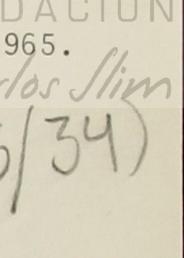 DACIÓN
965.
los Slim
/34)